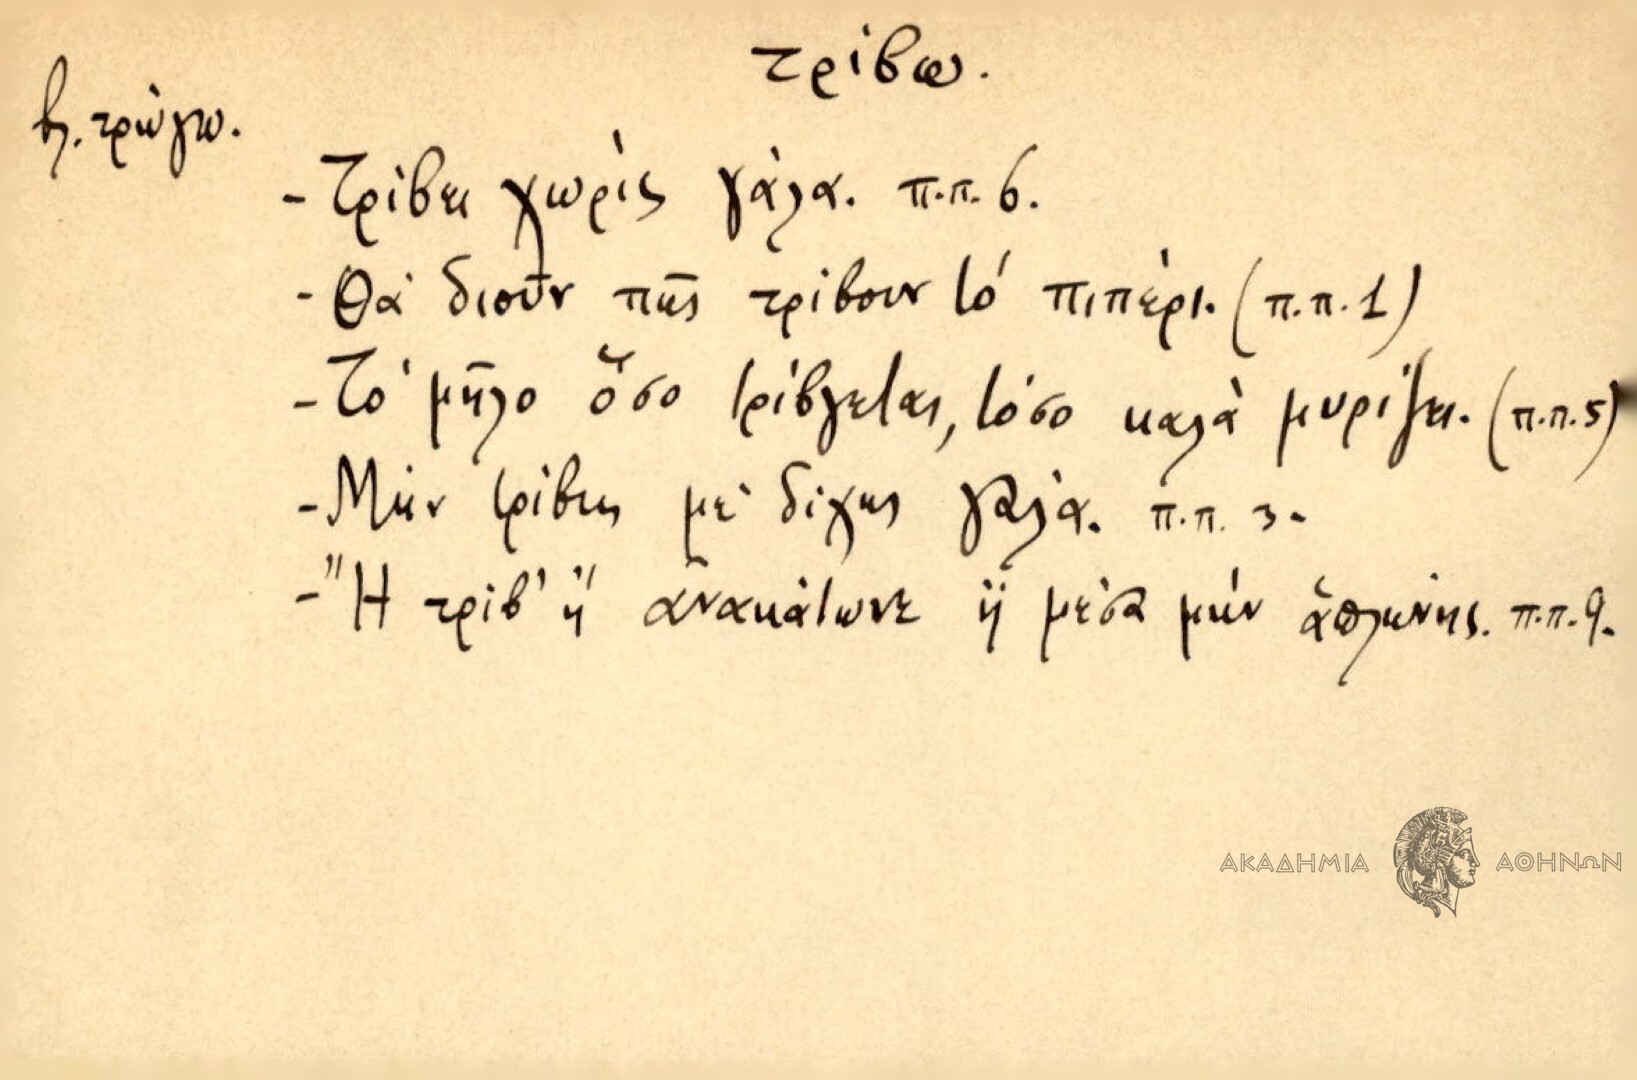 τρίβω.
βλ. τρώγω.
- Τρίβει χωρὶς γάλα. π.π. 6.
- Θὰ διοῦν πῆς τρίβουν τό πιπέρι. (π.π. 1)
- Τό μῆλο ὅσο τρίβγεται, τόσο καλὰ μυρίζει. (π.π. 5)
- Μήν τρίβεις μὲ δίχως γάλα. π.π. 3.
- Ἢ τρίβ' ἢ ἀνακάτωνε ἢ μέσα μήν ἁπλώνης. π.π. 9.
ΑΚΑΔΗΜΙΑ ΑΘΗΝΩΝ